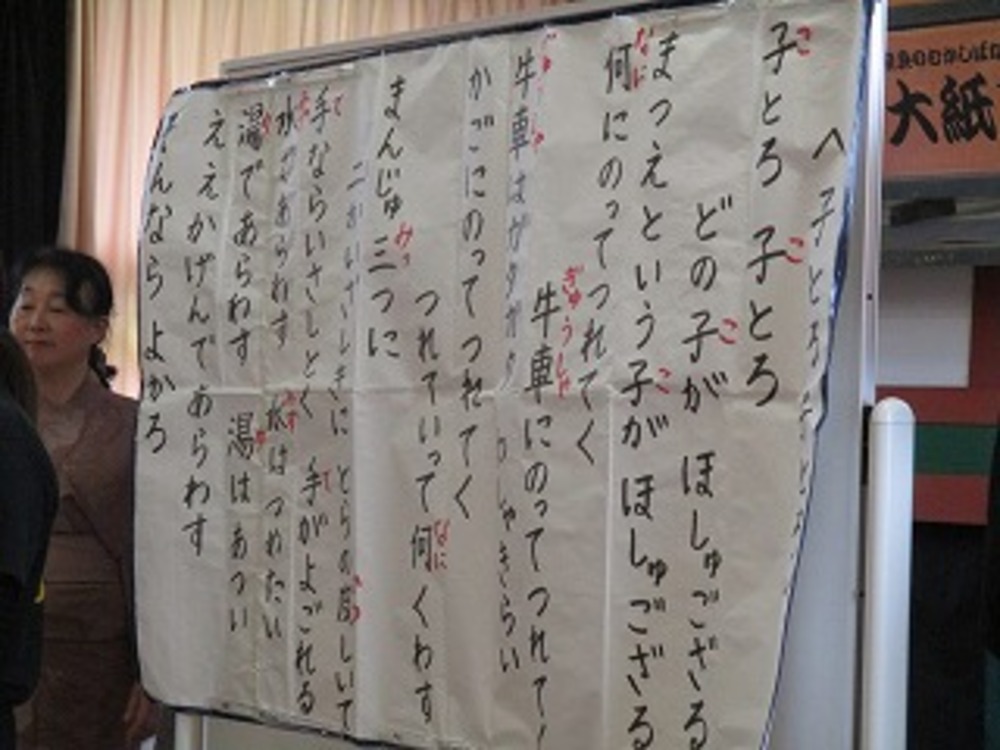 子とろ 子とろ
子とろ 子とろ
どの子が ほしゅござる
まつえという子が ほしゅござる
何にのってつれてく
牛車にのってつれてく
牛車はガタガタ しゃきらい
かごにのってつれてく
つれていって何くわす
まんじゅ三つに
二かいざしきに とらの皮しいて
手ならいさしとく 手がよごれる
水であらわす 水はつめたい
湯であらわす 湯はあつい
ええかげんであらわす
ほんなら よかろ
大紙